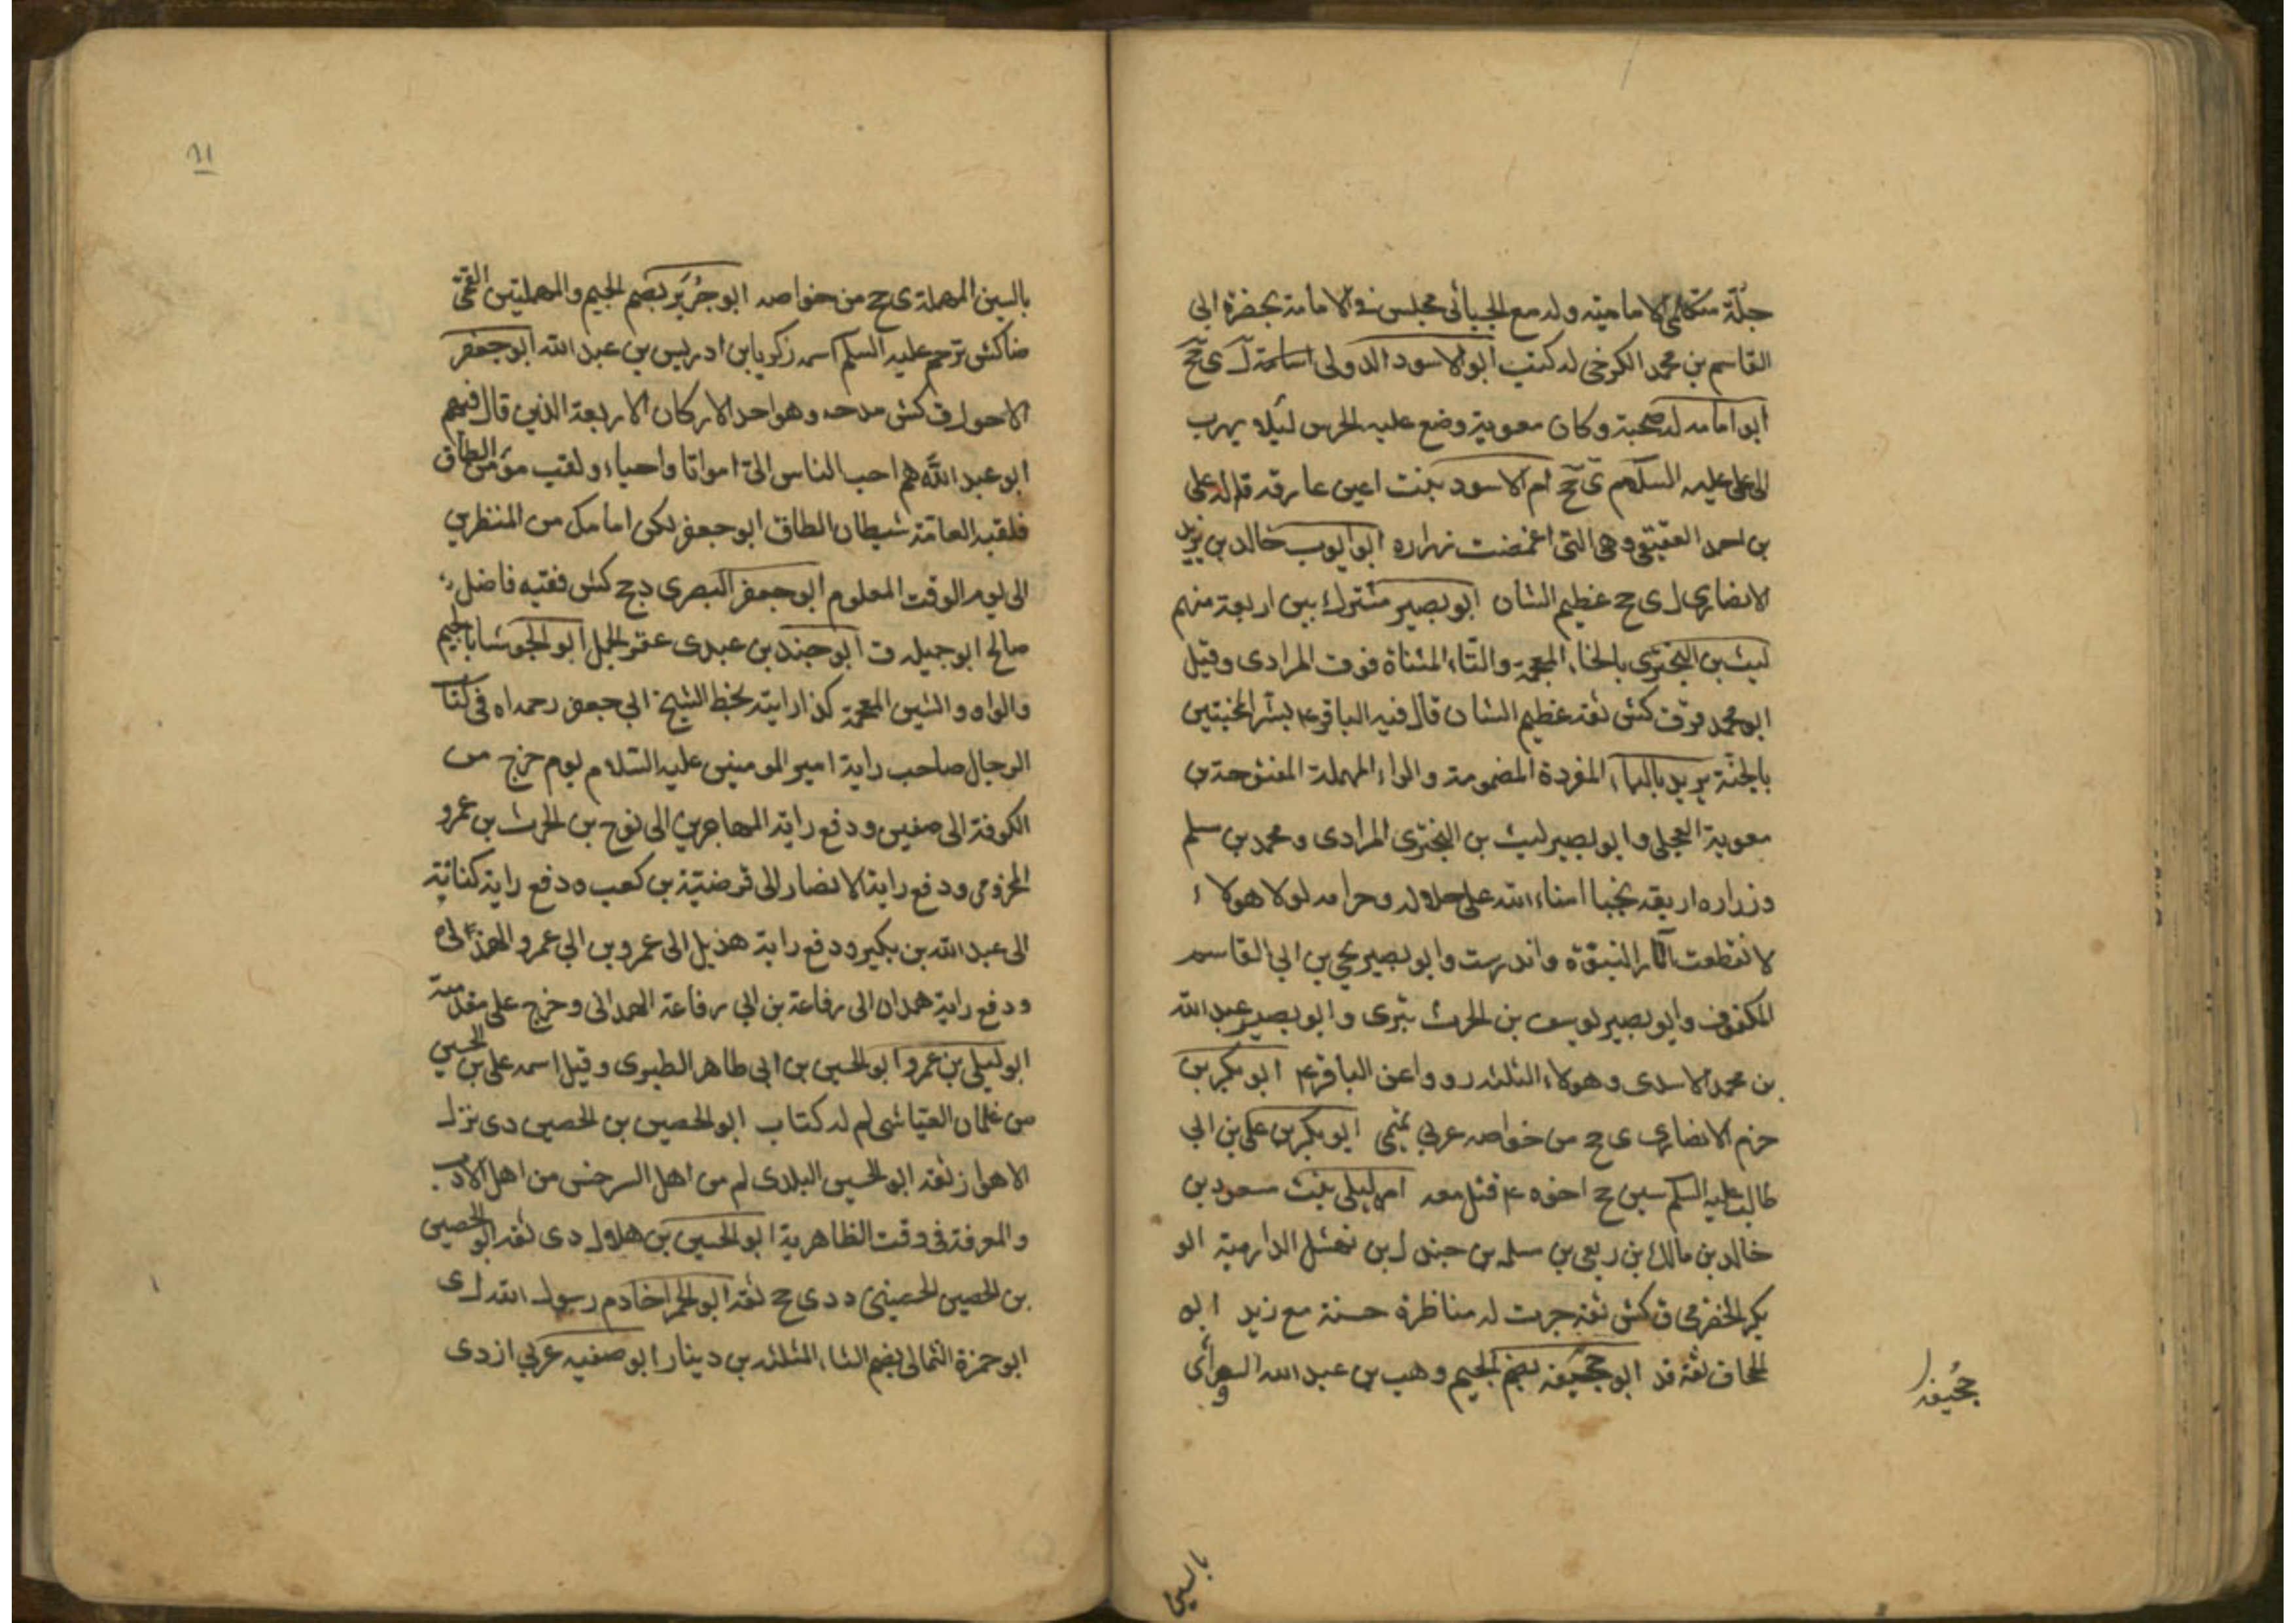 جلّة متكلمي الامامية وله مع الجبائي مجلس في الامامة بحضرة ابي
القاسم بن محمد الكرخي له كتب ابو الاسود الدولى ل ى جخ
ابو امامه له صحبة وكان معوية وضع عليه الحرس ليلا يهرب
الى على عليه السلم ى جخ ام الاسود بنت اعين عارفه قاله على
بن احمد العقيقى وهى التى اغمضت زراره ابو ايوب خالد بن زيد
الانصارى ل ى ج عظيم الشان ابو بصير مشترك بين اربعة منهم
ليث بن البخترى بالخاء المعجمة والتاء المثناة فوق المرادى وقيل
ابو محمد قر ق كش ثقه عظيم الشان قال فيه الباقر ع بشر المخبتين
بالجنّة بريد بالباء المفردة المضمومة والراء المهملة المفتوحة بن
معوية العجلى وابو بصير ليث بن البخترى المرادى ومحمد بن مسلم
وزراره اربعه نجبا امناء الله على حلاله وحرامه لولا هولاء
لانقطعت اثار النبوّة واندرست وابو بصير يحيى بن ابي القاسم
المكفوف وابو بصير يوسف بن الحرث بترى وابو بصير عبد الله
بن محمد الاسدى وهولاء الثلثه رووا عن الباقر ع ابو بكر بن
حزم الانصارى ى ج من خواصه عربي ابو بكر بن على بن ابي
طالب عليه السلم سين ج اخوه ع قتل معه امه ليلى بنت مسعود بن
خالد بن مالك بن ربعى بن سلمه بن جندل بن نهشل الدارمية ابو
بكر الحضرمى ق كش ثقة جرت له مناظرة حسنة مع زيد ابو
الجحاف ثقة قد ابو جحيفه بضم الجيم وهب بن عبد الله السوائى
جُحيفه
بالسين
٩١
بالسين المهملة ى ج من خواصه ابو جُرَير بضم الجيم والمهملتين القمّى
ضا كش ترحم عليه السلم اسمه زكريا بن ادريس بن عبد الله ابو جعفر
الاحول ق كش مدحه وهو احد الاركان الاربعة الذين قال فيهم
ابو عبد الله هم احب الناس الىّ امواتا واحياء ولقب مؤمن الطاق
فلقبه العامّة شيطان الطاق ابو جعفر لكن امامك من المنظرين
الى يوم الوقت المعلوم ابو جعفر البصرى دج كش فقيه فاضل
صالح ابو جميله ق ابو جند بن عبدى عقر الجمل ابو الجوشا بالجيم
والواو والشين المعجمة كذا رايته بخط الشيخ ابي جعفر رحمه اه فى كتا
الرجال صاحب راية امير المومنين عليه السّلام يوم خرج من
الكوفة الى صفين ودفع راية المهاجرين الى نوح بن الحرث بن عمرو
المخزومى ودفع راية الانصار الى قرضيّة بن كعب ودفع راية كنانة
الى عبد الله بن بكير ودفع راية هذيل الى عمرو بن ابي عمرو الهذلى
ودفع راية همدان الى رفاعة بن ابي رفاعة الهمدانى وخرج على مقدمته
ابو ليلى بن عمرو ابو الحسين بن ابى طاهر الطبرى وقيل اسمه على بن الحسين
من غلمان العيّاشى لم له كتاب ابو الحصين بن الحصين دى نزل
الاهواز ثقه ابو الحسين البلدى لم من اهل السرخس من اهل الادب
والمعرفة فى وقت الظاهرية ابو الحسين بن هلال دى ثقه ابو الحصين
بن الحصين الحصينى د دى ج ثقه ابو الحمرا خادم رسول الله ل ى
ابو حمزة الثمالى بضم الثاء المثلثه بن دينار ابو صفيه عربي ازدى